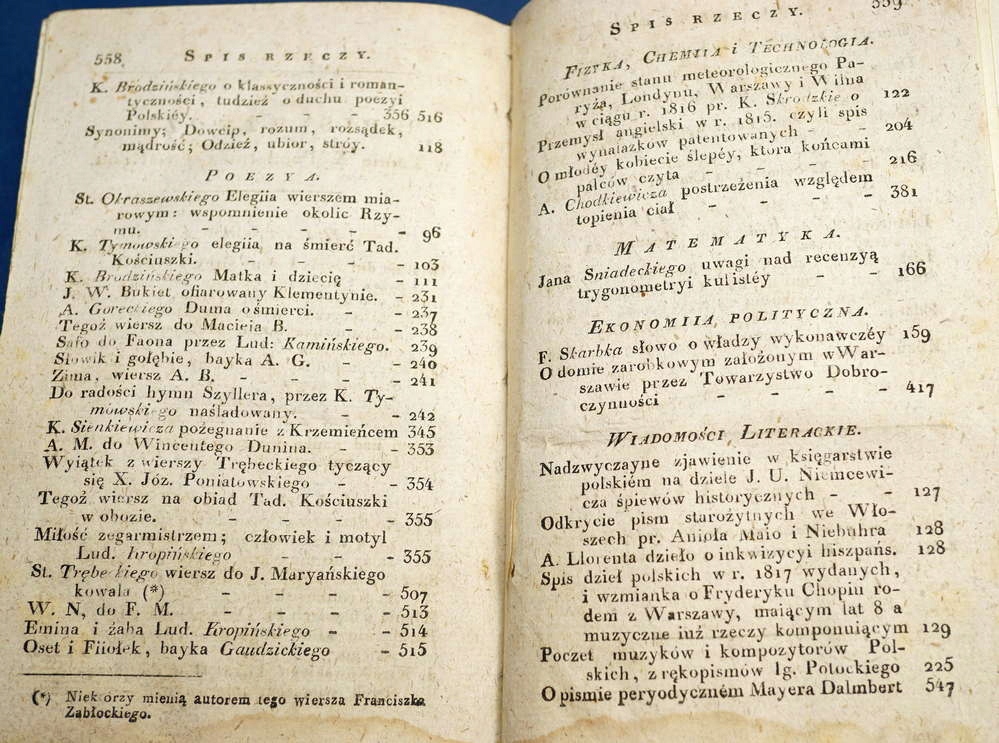 558 SPIS RZECZY.
K. Brodzińskiego o klassyczności i roman-
tyczności, tudzież o duchu poezyi
Polskiéy. - - - 356 516
Synonimy; Dowcip, rozum, rozsądek,
mądrość; Odzież, ubior, stróy. 118
POEZYA.
St. Okraszewskiego Elegiia wierszem mia-
rowym: wspomnienie okolic Rzy-
mu. - - - - - 96
K. Tymowskiego elegiia na śmierć Tad.
Kościuszki. - - - - 103
K. Brodzińskiego Matka i dziecię - - 111
J. W. Bukiet ofiarowany Klementynie. - 231
A. Goreckiego Duma o śmierci. - - 237
Tegoż wiersz do Macieia B. - - 238
Safo do Faona przez Lud: Kamińskiego. 239
Słowik i gołębie, bayka A. G. - - 240
Zima, wiersz A. B. - - - - 241
Do radości hymn Szyllera, przez K. Ty-
mowskiego naśladowany. - - 242
K. Sienkiewicza pożegnanie z Krzemieńcem 345
A. M. do Wincentego Dunina. - - 353
Wyiątek z wierszy Trębeckiego tyczący
się X. Józ. Poniatowskiego - - 354
Tegoż wiersz na obiad Tad. Kościuszki
w obozie. - - - - - 355
Miłość zegarmistrzem; człowiek i motyl
Lud. Kropińskiego - - - 355
St. Trębeckiego wiersz do J. Maryańskiego
kowala (*) - - - - 507
W. N. do F. M. - - - - 513
Emina i żaba Lud. Kropińskiego - - 514
Oset i Fiiołek, bayka Gaudzickiego - 515
(*) Niektórzy mienią autorem tego wiersza Franciszka
Zabłockiego.
SPIS RZECZY. 559
FIZYKA, CHEMIIA i TECHNOLOGIA.
Porównanie stanu meteorologicznego Pa-
ryża, Londynu, Warszawy i Wilna
w ciągu r. 1816 pr. K. Skrodzkiego 122
Przemysł angielski w r. 1815. czyli spis
wynalazków patentowanych - - 204
O młodéy kobiecie ślepéy, która końcami
palców czyta - - - - 216
A. Chodkiewicza postrzeżenia względem
topienia ciał - - - - 381
MATEMATYKA.
Jana Sniadeckiego uwagi nad recenzyą
trygonometryi kulistéy - - 166
EKONOMIIA POLITYCZNA.
F. Skarbka słowo o władzy wykonawczéy 159
O domie zarobkowym założonym w War-
szawie przez Towarzystwo Dobro-
czynności - - - - 417
WIADOMOŚCI LITERACKIE.
Nadzwyczayne zjawienie w księgarstwie
polskiém na dziele J. U. Niemcewi-
cza śpiewów historycznych - - 127
Odkrycie pism starożytnych we Wło-
szech pr. Anioła Maio i Niebuhra 128
A. Llorenta dzieło o inkwizycyi hiszpańs. 128
Spis dzieł polskich w r. 1817 wydanych,
i wzmianka o Fryderyku Chopin ro-
dem z Warszawy, maiącym lat 8 a
muzyczne iuż rzeczy komponuiącym 129
Poczet muzyków i kompozytorów Pol-
skich, z rękopismów Ig. Potockiego 225
O piśmie peryodyczném Mayera Dalmbert 547